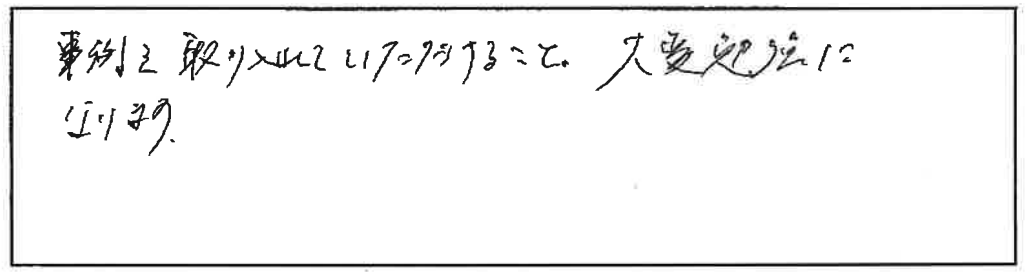 事例を取り入れていすること。大変勉強に
なります。